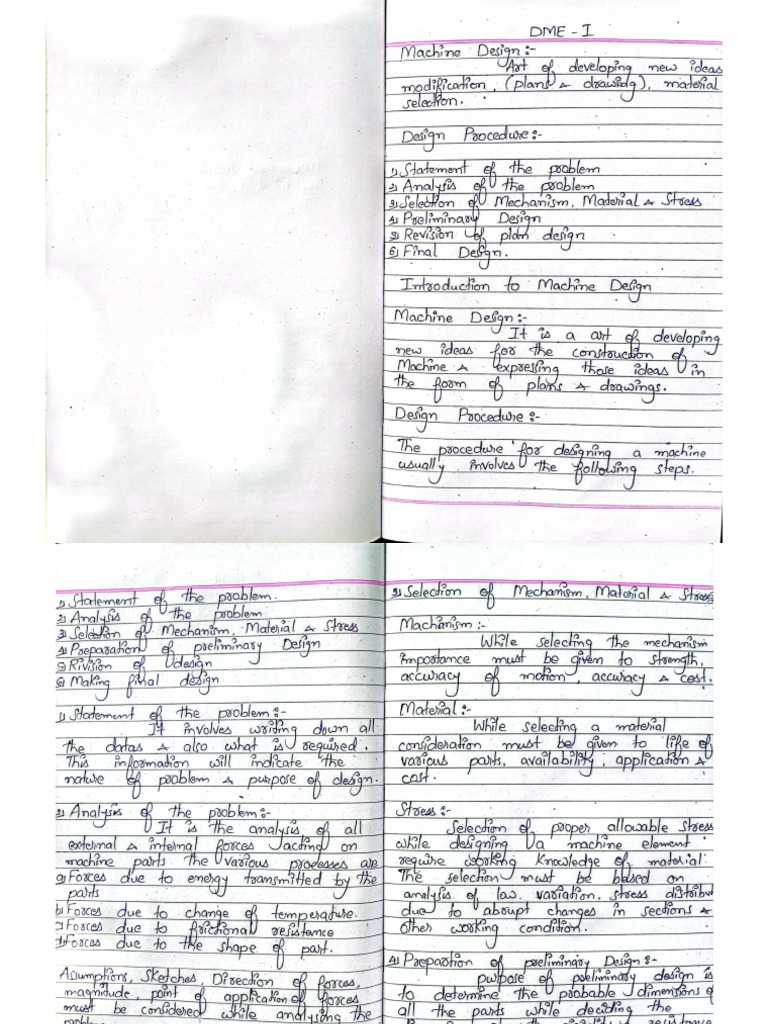 DME - I
Machine Design:-
Art of developing new ideas
modification, (plans & drawidg), material
selection.
Design Procedure:-
1) Statement of the problem
2) Analysis of the problem
3) Selection of Mechanism, Material & Stress
4) Preliminary Design
5) Revision of plan design
6) Final Design.
Introduction to Machine Design
Machine Design:-
It is a art of developing
new ideas for the construction of
Machine & expressing those ideas in
the form of plans & drawings.
Design Procedure:-
The procedure for designing a machine
usually involves the following steps.
1) Statement of the problem.
2) Analysis of the problem
3) Selection of Mechanism, Material & Stress
4) Preparation of preliminary Design
5) Rivision of design
6) Making final design
1) Statement of the problem:-
It involves writing down all
the datas & also what is required.
This information will indicate the
nature of problem & purpose of design.
2) Analysis of the problem:-
It is the analysis of all
external & internal forces acting on
machine parts the various processes are
a) Forces due to energy transmitted by the
parts
b) Forces due to change of temperature.
c) Forces due to frictional resistance
d) Forces due to the shape of part.
Assumptions, Sketches, Direction of forces,
magnitude, point of application of forces
must be considered while analysing the
3) Selection of Mechanism, Material & Stress
Machanism:-
While selecting the mechanism
importance must be given to strength,
accuracy of motion, accuracy & cost.
Material:-
While selecting a material
consideration must be given to life of
various parts, availability, application &
cost.
Stress:-
Selection of proper allowable stress
while designing a machine element
require working knowledge of material.
The selection must be based on
analysis of law, variation, stress distribut
due to abrupt changes in sections &
other working condition.
4) Prepartion of preliminary Design:-
purpose of preliminary design is
to determine the probable dimensions of
all the parts while deciding the